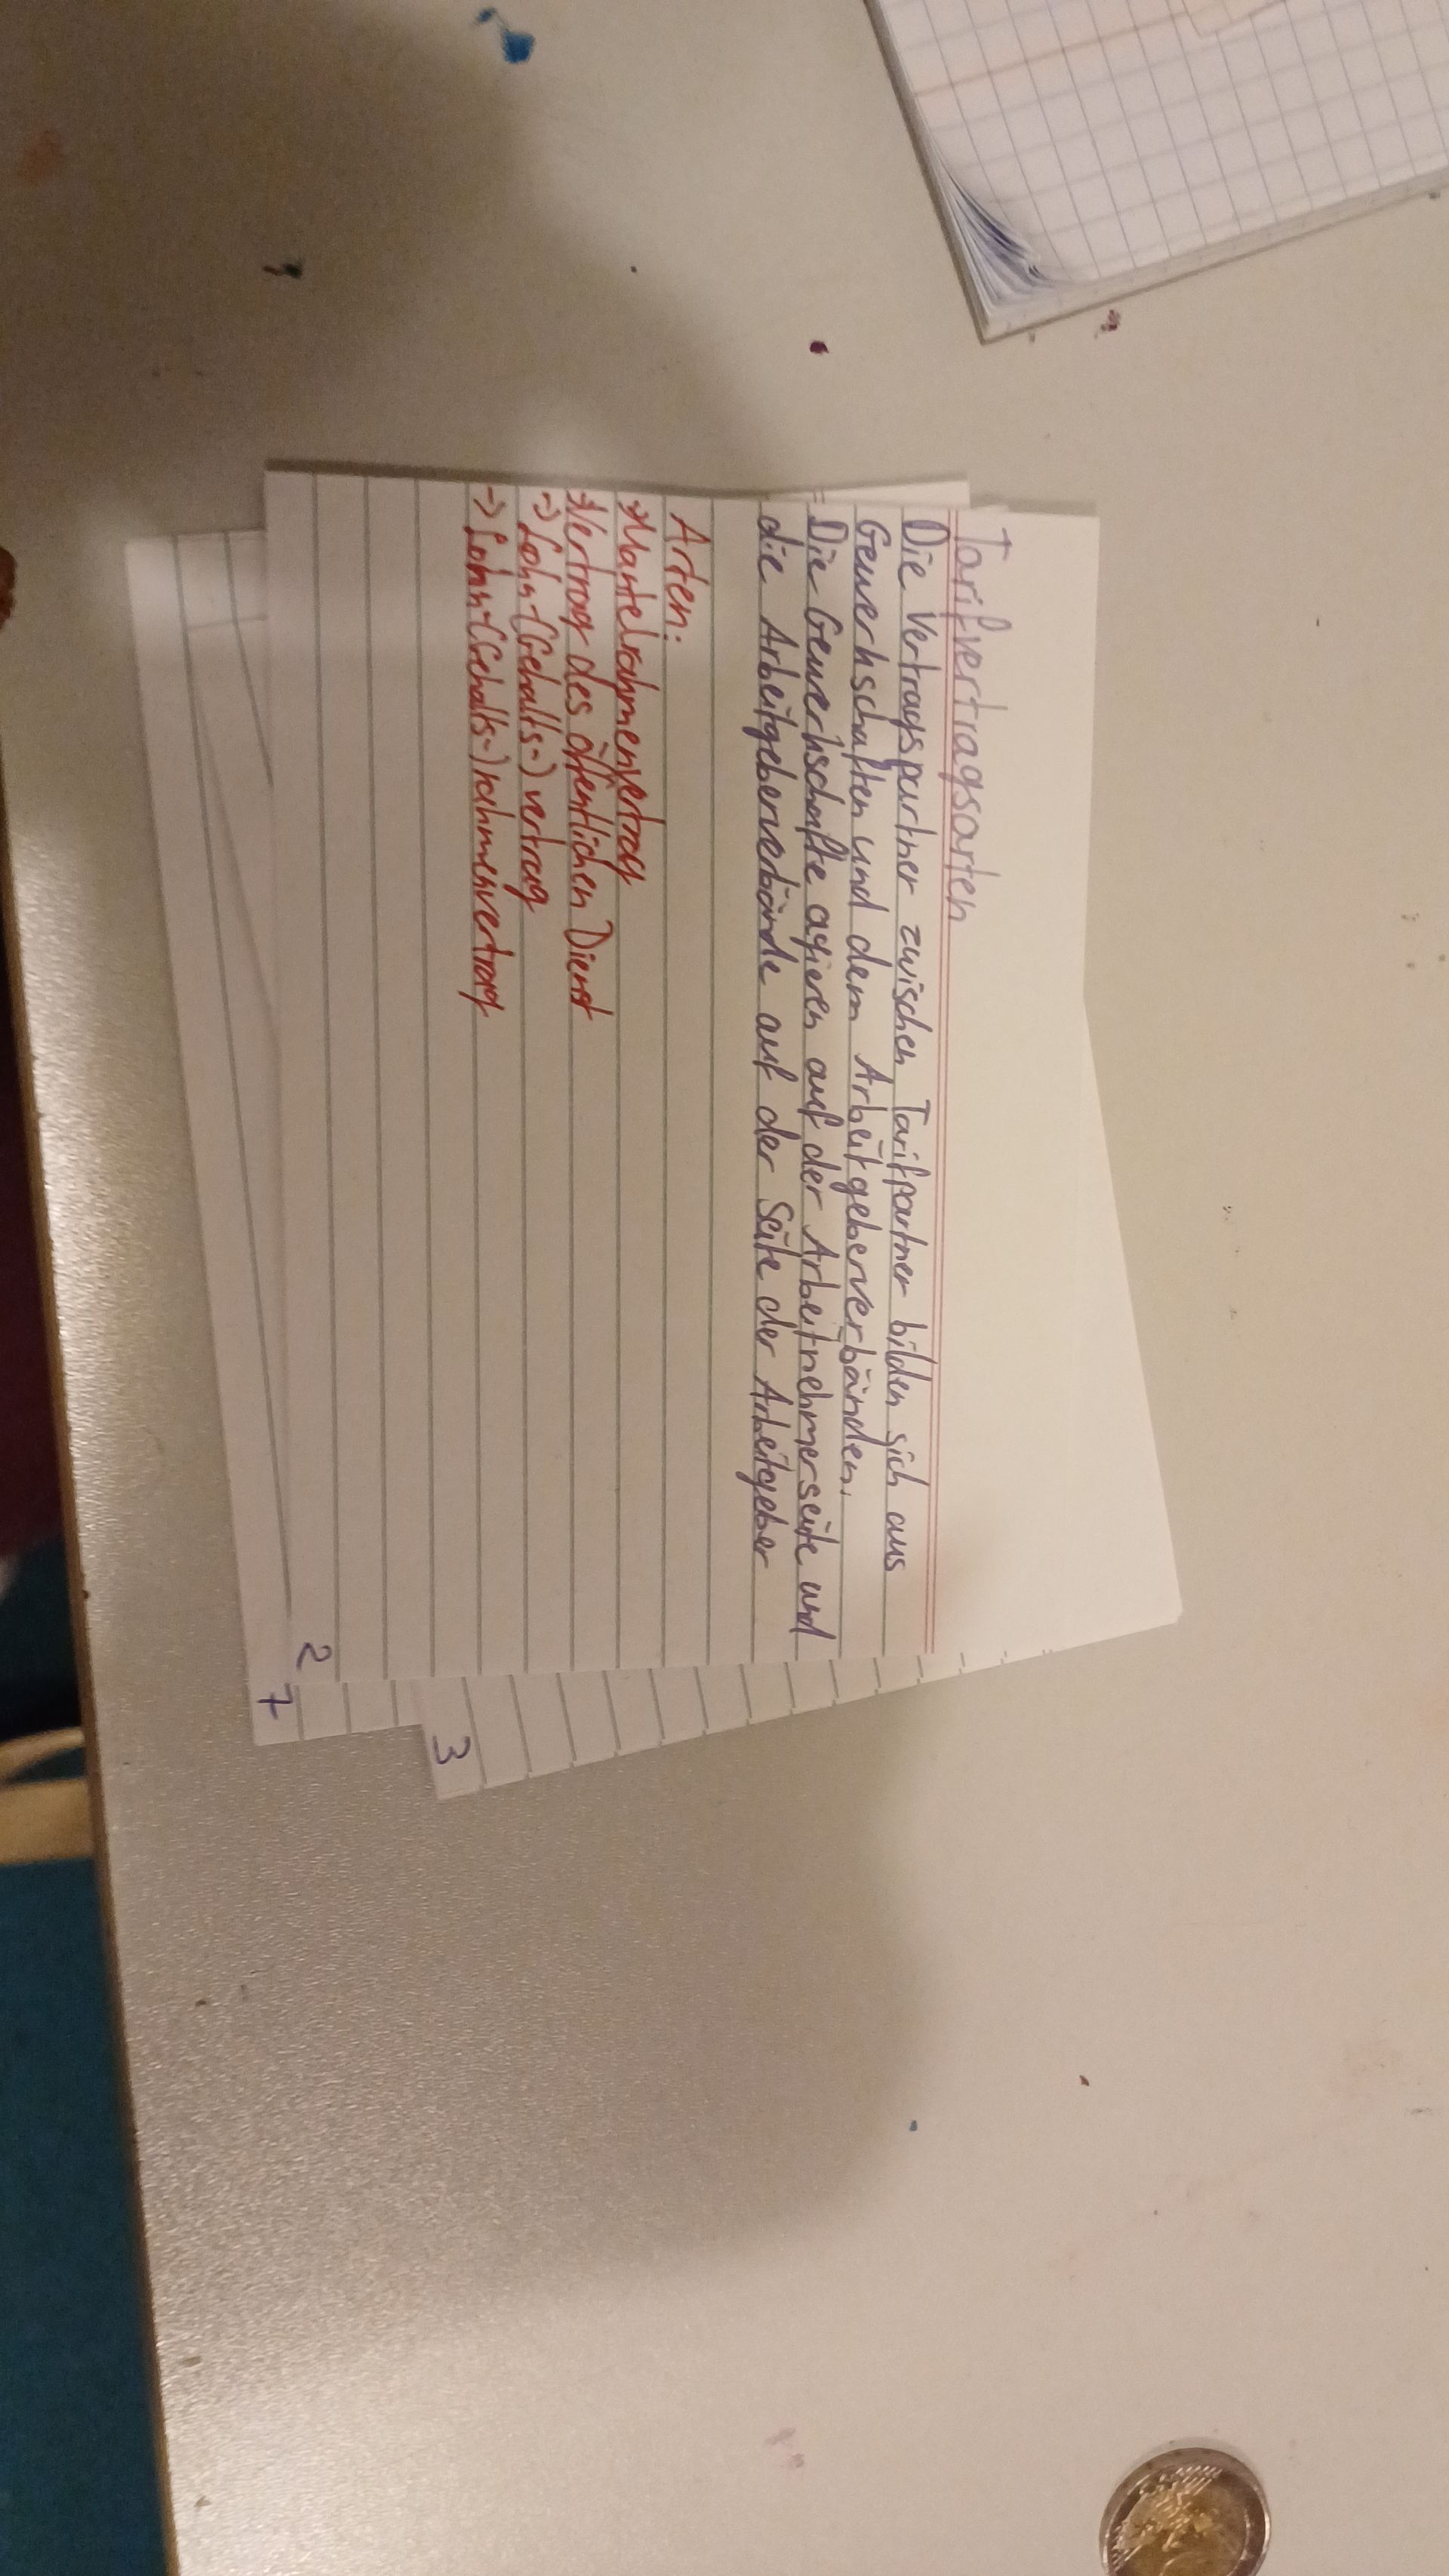 Tarifvertragsarten
Die Vertragspartner zwischen Tarifpartner bilden sich aus
Gewerkschaften und dem Arbeitgeberverbänden.
Die Gewerkschafte agieren auf der Arbeitnehmerseite und
die Arbeitgeberverbände auf der Seite der Arbeitgeber
Arten:
→Mantelrahmenvertrag
→Vertrag des öffentlichen Dienst
→ Lohn-(Gehalts-)vertrag
→ Lohn-(Gehalts-)rahmenvertrag
2
7
3